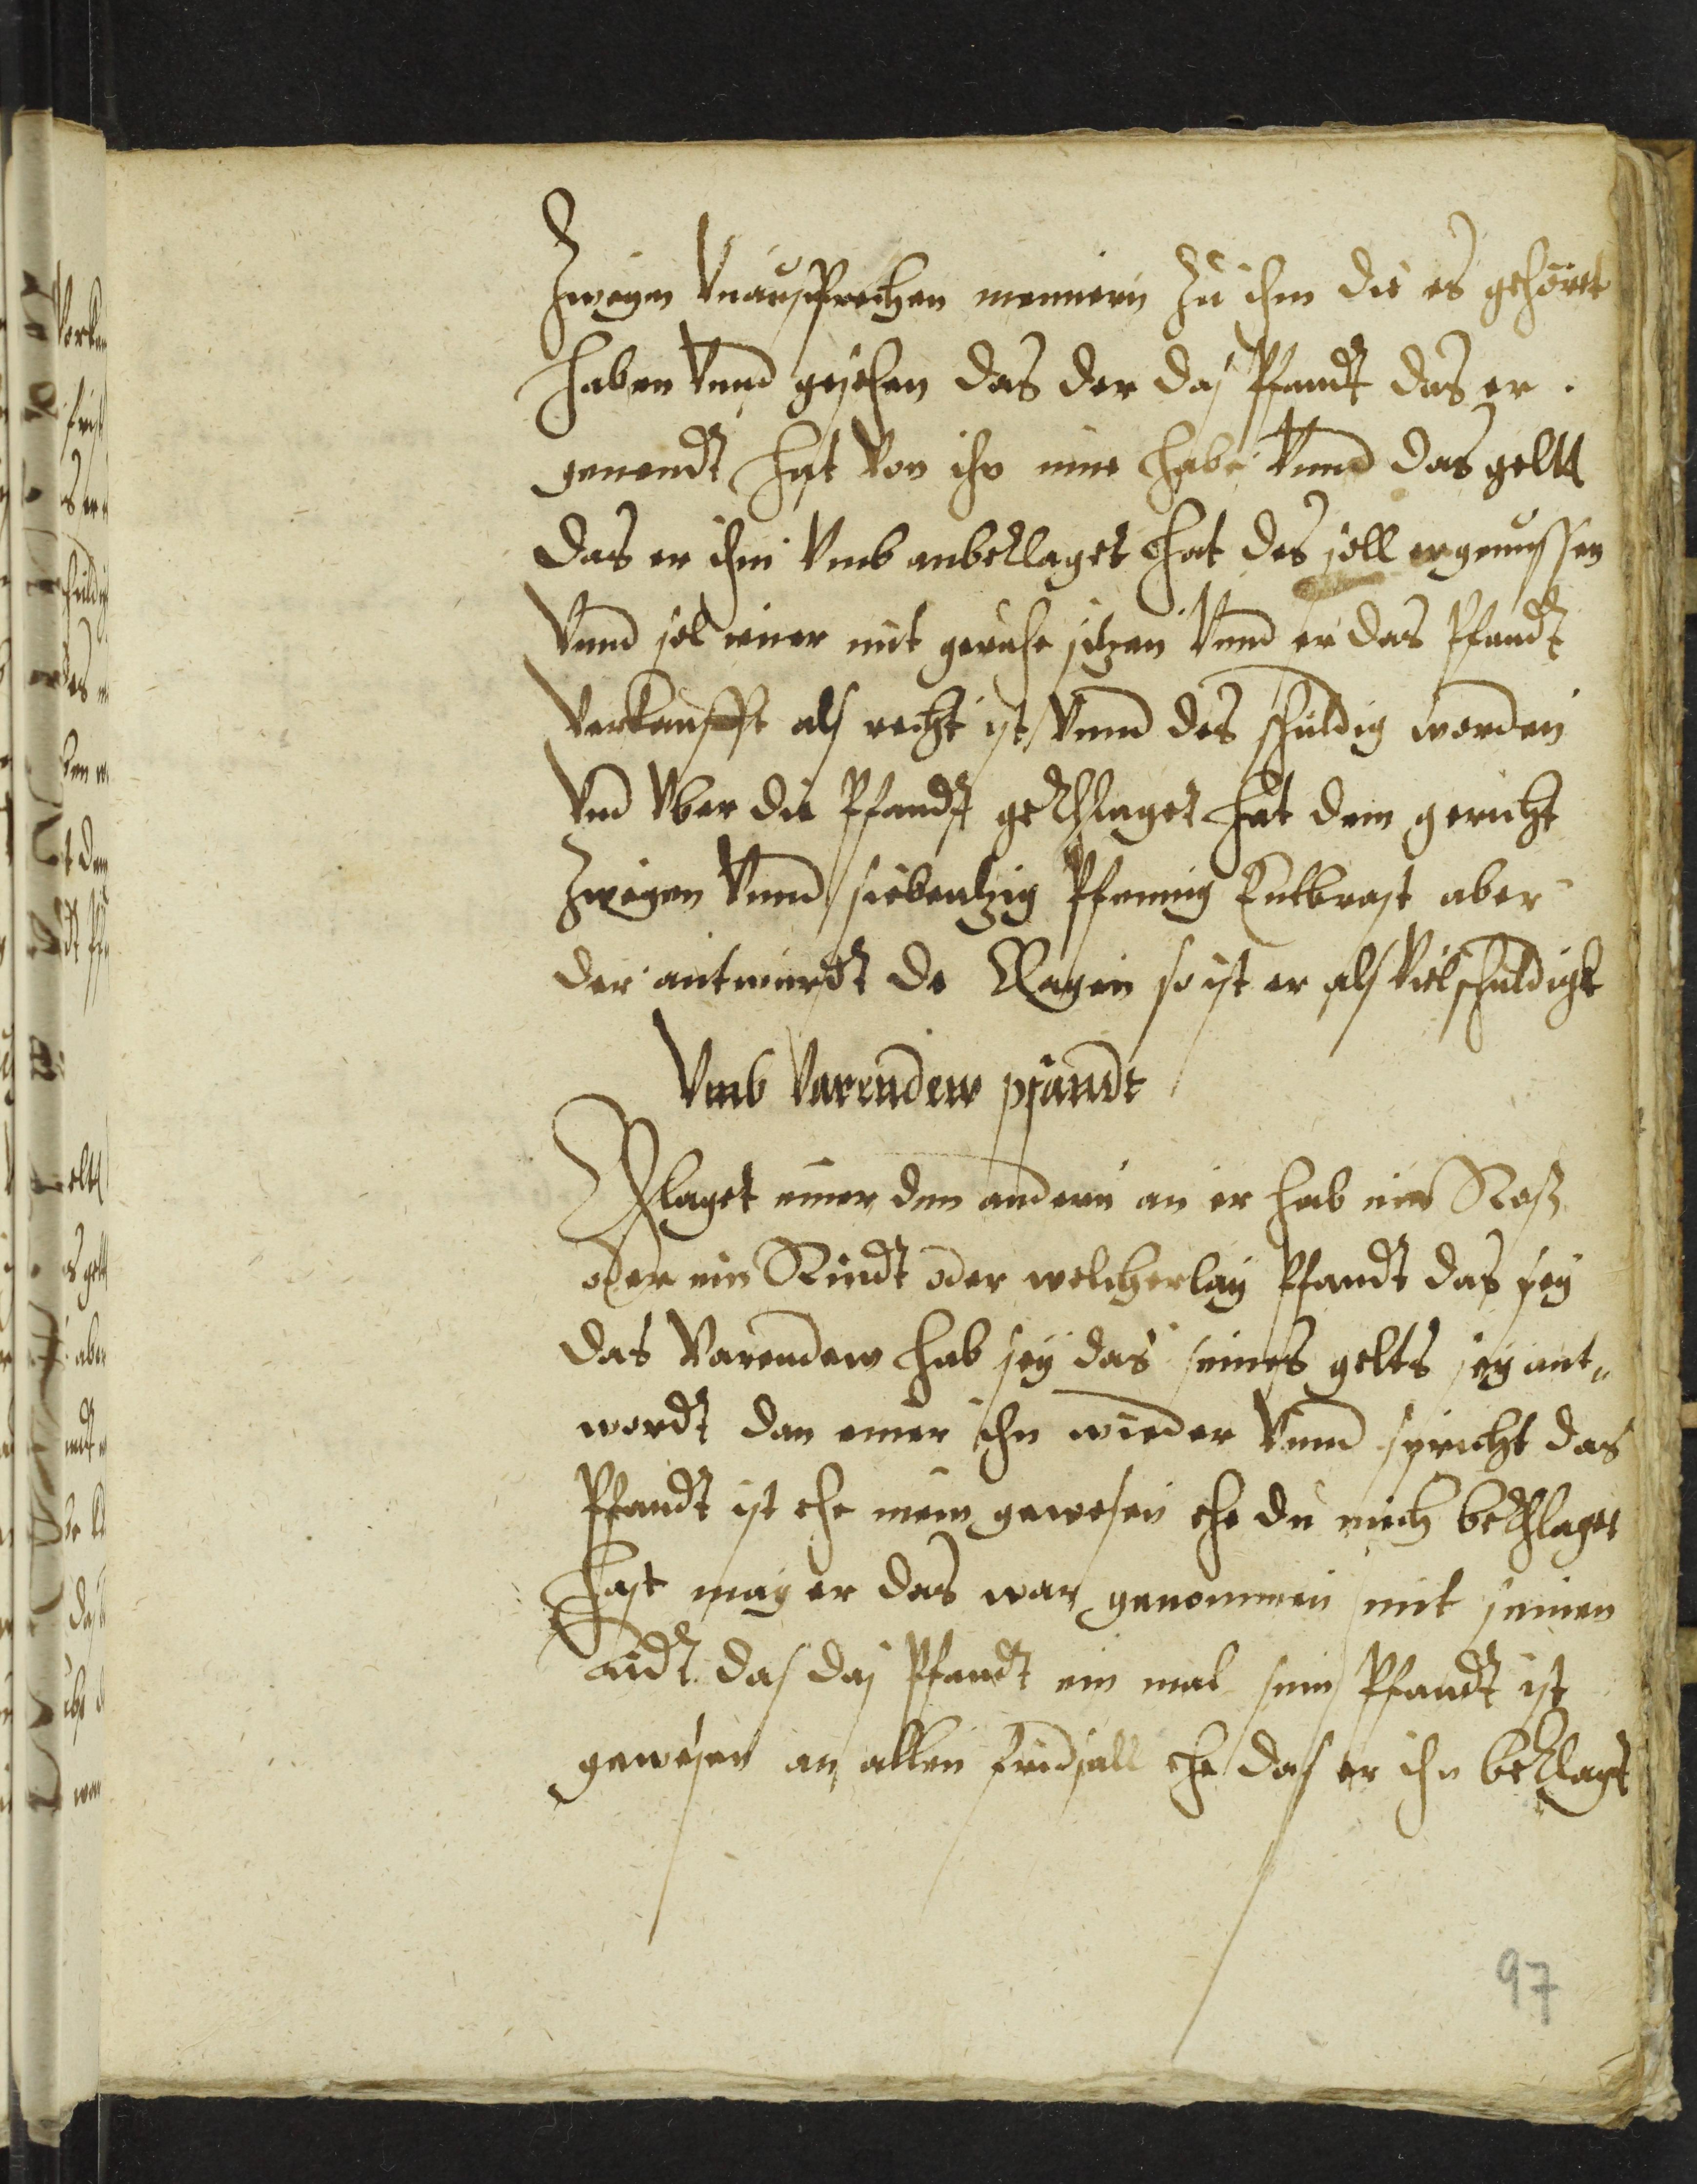 Zweyen Unausprechen mennern zu ihm die es gehört
haben Vnnd gesehen das der das Pfandt das er
genendt hat von ihr inne habe Vnnd das geltt
das er ihm Vmb anbeklaget hat des soll er genüssen
Vnnd sol einer mit geruhe sitzen Vnnd er das Pfandt
Verkaufft als recht ist Vnnd des schuldig worden
Vnd Vber die Pfandt gekhlaget hat dem gericht
Zweyen Vnnd siebentzig Pfenning Entbrast aber
der antwurdt de Klagen so ist er als viel schuldigk
Vmb Varenden pfandt
Klaget einer den andern an er hab ein Roß
oder ein Rindt oder welcherlay Pfandt das sey
das Varendew hab sey das seines gelts sey ant„
wordt dan einer ihn wieder Vnnd spricht das
Pfandt ist ehe mein gewesen ehe du mich bekhlaget
hast mag er das war genommen mit seinen
aidt das das Pfandt ein mal sein Pfandt ist
gewesen an allen fridsall ehe das er ihn beklagt
97